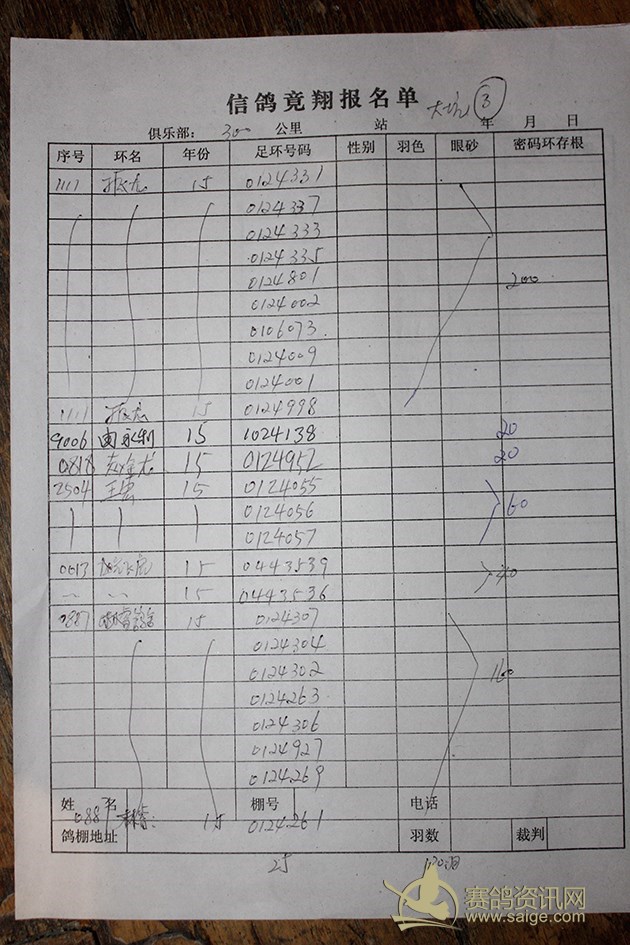 信鸽竟翔报名单 3
俱乐部： 300 公里 站 年 月 日
序号 环名 年份 足环号码 性别 羽色 眼砂 密码环存根
1111 15 0124331
0124337
0124333
0124335
0124801 200
0124002
0106073
0124009
0124001
1111 15 0124998
9006 曲永利 15 1024138 20
0818 15 0124952 20
2504 王 15 0124055
0124056 60
0124057
0013 15 0443539 40
15 0443536
0887 15 0124307
0124304
0124302 160
0124263
0124306
0124927
0124269
姓 名 棚号 电话
0887 15 0124261
鸽棚地址 羽数 裁判
25
赛鸽资讯网
www.saige.com